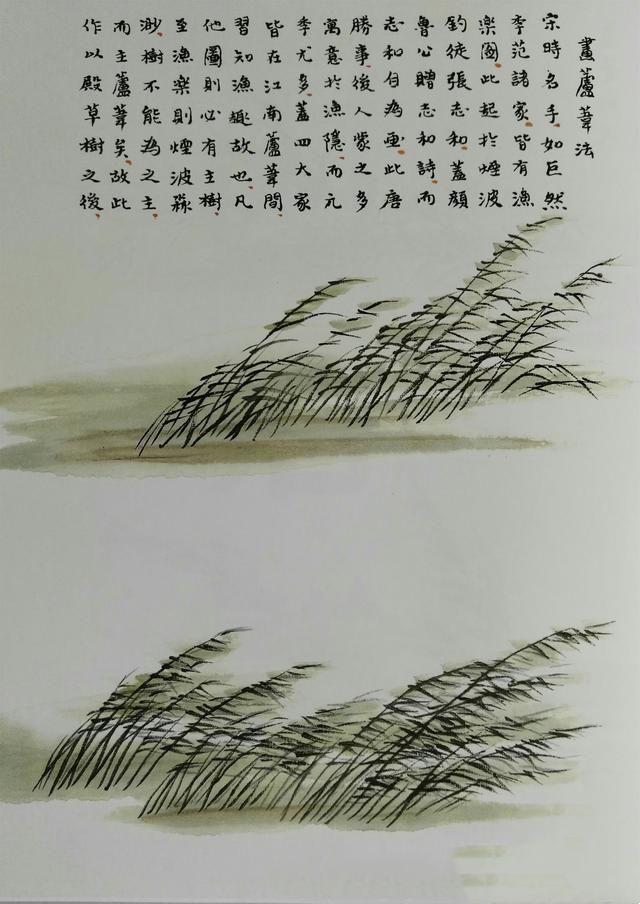 畫蘆葦法
宋時名手如巨然
李范諸家皆有漁
樂圖此起於煙波
釣徒張志和蓋顏
魯公贈志和詩而
志和自為畫此唐
勝事後人蒙之多
寓意於漁隱而元
季尤多蓋四大家
皆在江南蘆葦間
習知漁趣故也凡
他圖則必有主樹
至漁樂則煙波淼
渺樹不能為之主
而主蘆葦矣故此
作以殿草樹之後